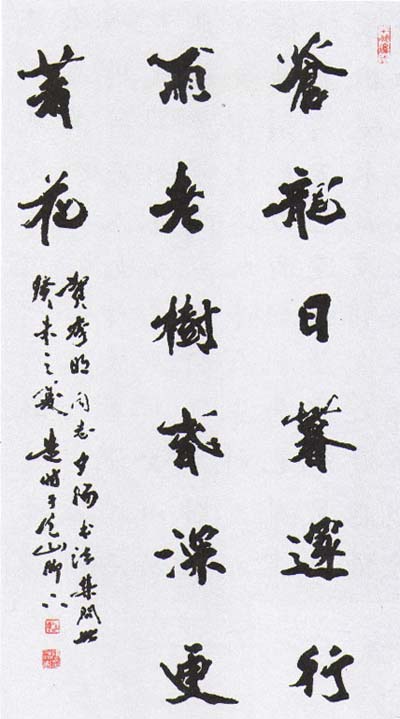 蒼龍日暮還行
雨老樹歲深更
著花
賀秀明同志夕陽书法集問世
癸未之歲 于 山脚下